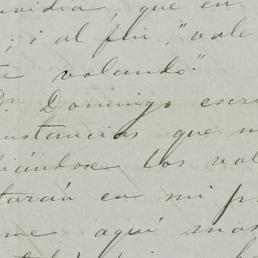 que en
; i al fin, "vale
volando".
Dn Domingo escri
nstancias que m
iándose los val
tarán en mi p
me aquí mas